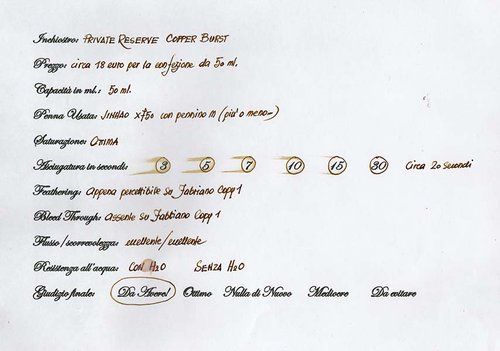 Inchiostro: PRIVATE RESERVE COPPER BURST
Prezzo: circa 18 euro per la confezione da 50 ml.
Capacità in ml.: 50 ml.
Penna Usata: JINHAO x750 con pennino M (più o meno-)
Saturazione: OTTIMA
Asciugatura in secondi: 3 5 7 10 15 30 Circa 20 secondi
Feathering: Appena percettibile su Fabriano Copy 1
Bleed Through: Assente su Fabriano Copy 1
Flusso / scorrevolezza: eccellente/eccellente
Resistenza all'acqua: CON H2O SENZA H2O
Giudizio finale: Da Avere! Ottimo Nulla di Nuovo Mediocre Da evitare